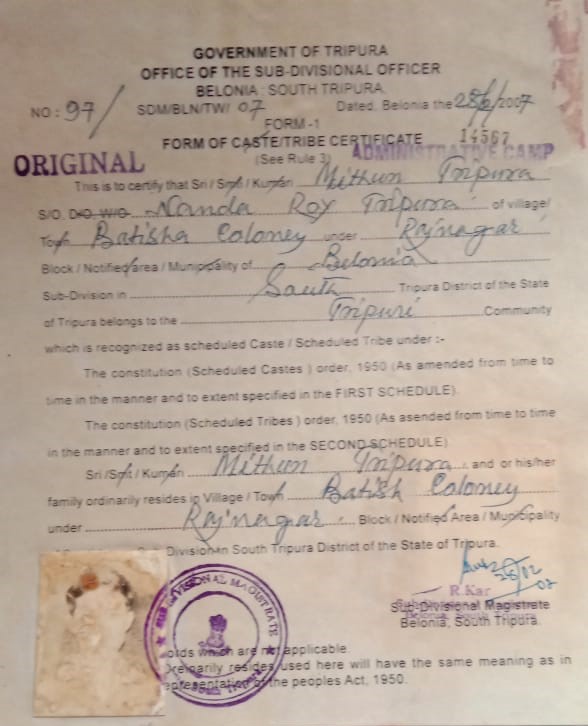 GOVERNMENT OF TRIPURA
OFFICE OF THE SUB-DIVISIONAL OFFICER
BELONIA : SOUTH TRIPURA.
NO : 97/ SDM/BLN/TW/ 07 Dated, Belonia the 28/2/2007
FORM -1
14567
FORM OF CASTE/TRIBE CERTIFICATE
ORIGINAL (See Rule 3) ADMINISTRATIVE CAMP
This is to certify that Sri / Smt / Kumari Mithun Tripura
S/O. D/O. W/O Nanda Roy Tripura of village/
Town Batisha Coloney under Rajnagar
Block / Notified area / Municipality of Belonia
Sub-Division in South Tripura District of the State
of Tripura belongs to the Tripuri Community
which is recognized as scheduled Caste / Scheduled Tribe under :-
The constitution (Scheduled Castes ) order, 1950 (As amended from time to
time in the manner and to extent specified in the FIRST SCHEDULE).
The constitution (Scheduled Tribes ) order, 1950 (As asended from time to time
in the manner and to extent specified in the SECOND SCHEDULE)
Sri /Smt / Kumari Mithun Tripura and or his/her
family ordinarily resides in Village / Town Batish Coloney
under Rajnagar Block / Notified Area / Municipality
Division in South Tripura District of the State of Tripura.
28/02
07
R.Kar
Sub-Divisional Magistrate
Belonia, South Tripura.
SUB DIVISIONAL MAGISTRATE
South Tripura
which are not applicable.
resides used here will have the same meaning as in
of the peoples Act, 1950.